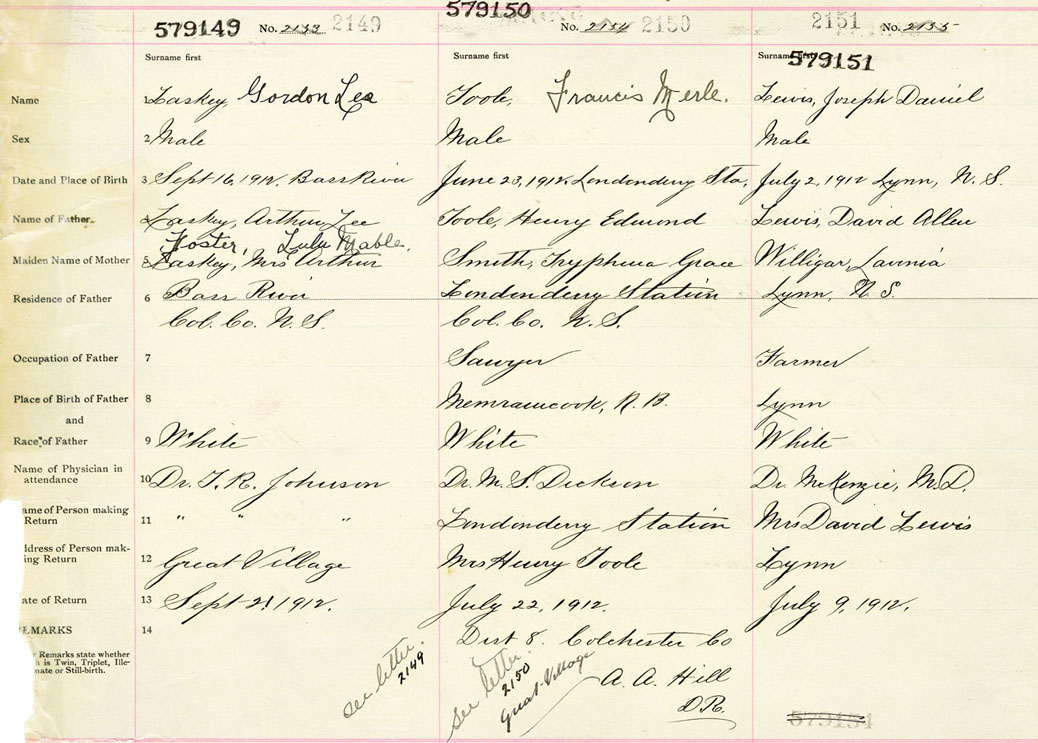 579149 No. 2133 2149
579150 No. 2154 2150
2151 No. 2155
579151
Surname first Surname first Surname first
Name 1 Laskey Gordon Lee Toole, Francis Merle. Lewis, Joseph Daniel
Sex 2 Male Male Male
Date and Place of Birth 3 Sept 16, 1912, Bass River June 23, 1912, Londonderry Sta. July 2, 1912 Lynn, N.S.
Name of Father Laskey, Arthur Lee Toole, Henry Edmond Lewis, David Allen
Foster, Lulu Mable.
Maiden Name of Mother 5 Laskey, Mrs Arthur Smith, Tryphena Grace Willigar, Lavinia
Residence of Father 6 Bass River Londonderry Station Lynn, N.S.
Col. Co. N.S. Col. Co. N.S.
Occupation of Father 7 Sawyer Farmer
Place of Birth of Father 8 Memramcook, N.B. Lynn
and
Race of Father 9 White White White
Name of Physician in
attendance 10 Dr. T. R. Johnson Dr. M. S. Dickson Dr. McKenzie, M.D.
ame of Person making
Return 11 " " " Londonderry Station Mrs David Lewis
ddress of Person mak-
ing Return 12 Great Village Mrs Henry Toole Lynn
ate of Return 13 Sept 21 1912. July 22, 1912. July 9, 1912.
EMARKS 14 Dist 8. Colchester Co
Remarks state whether
h is Twin, Triplet, Ille-
mate or Still-birth.
see letter 2149
see letter 2150
Great Village
A. A. Hill
D.R.
579154